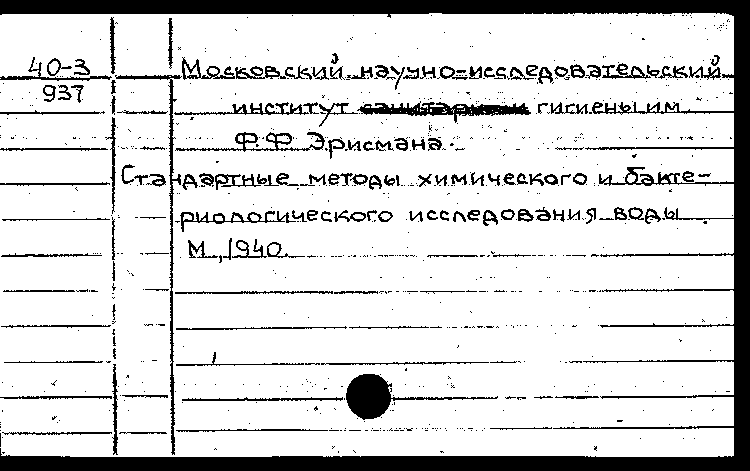 40-3
937
Московский научно-исследовательский
институт гигиены им.
Ф.Ф Эрисмана.
Стандартные методы химического и бакте-
риологического исследования воды.
М., 1940.